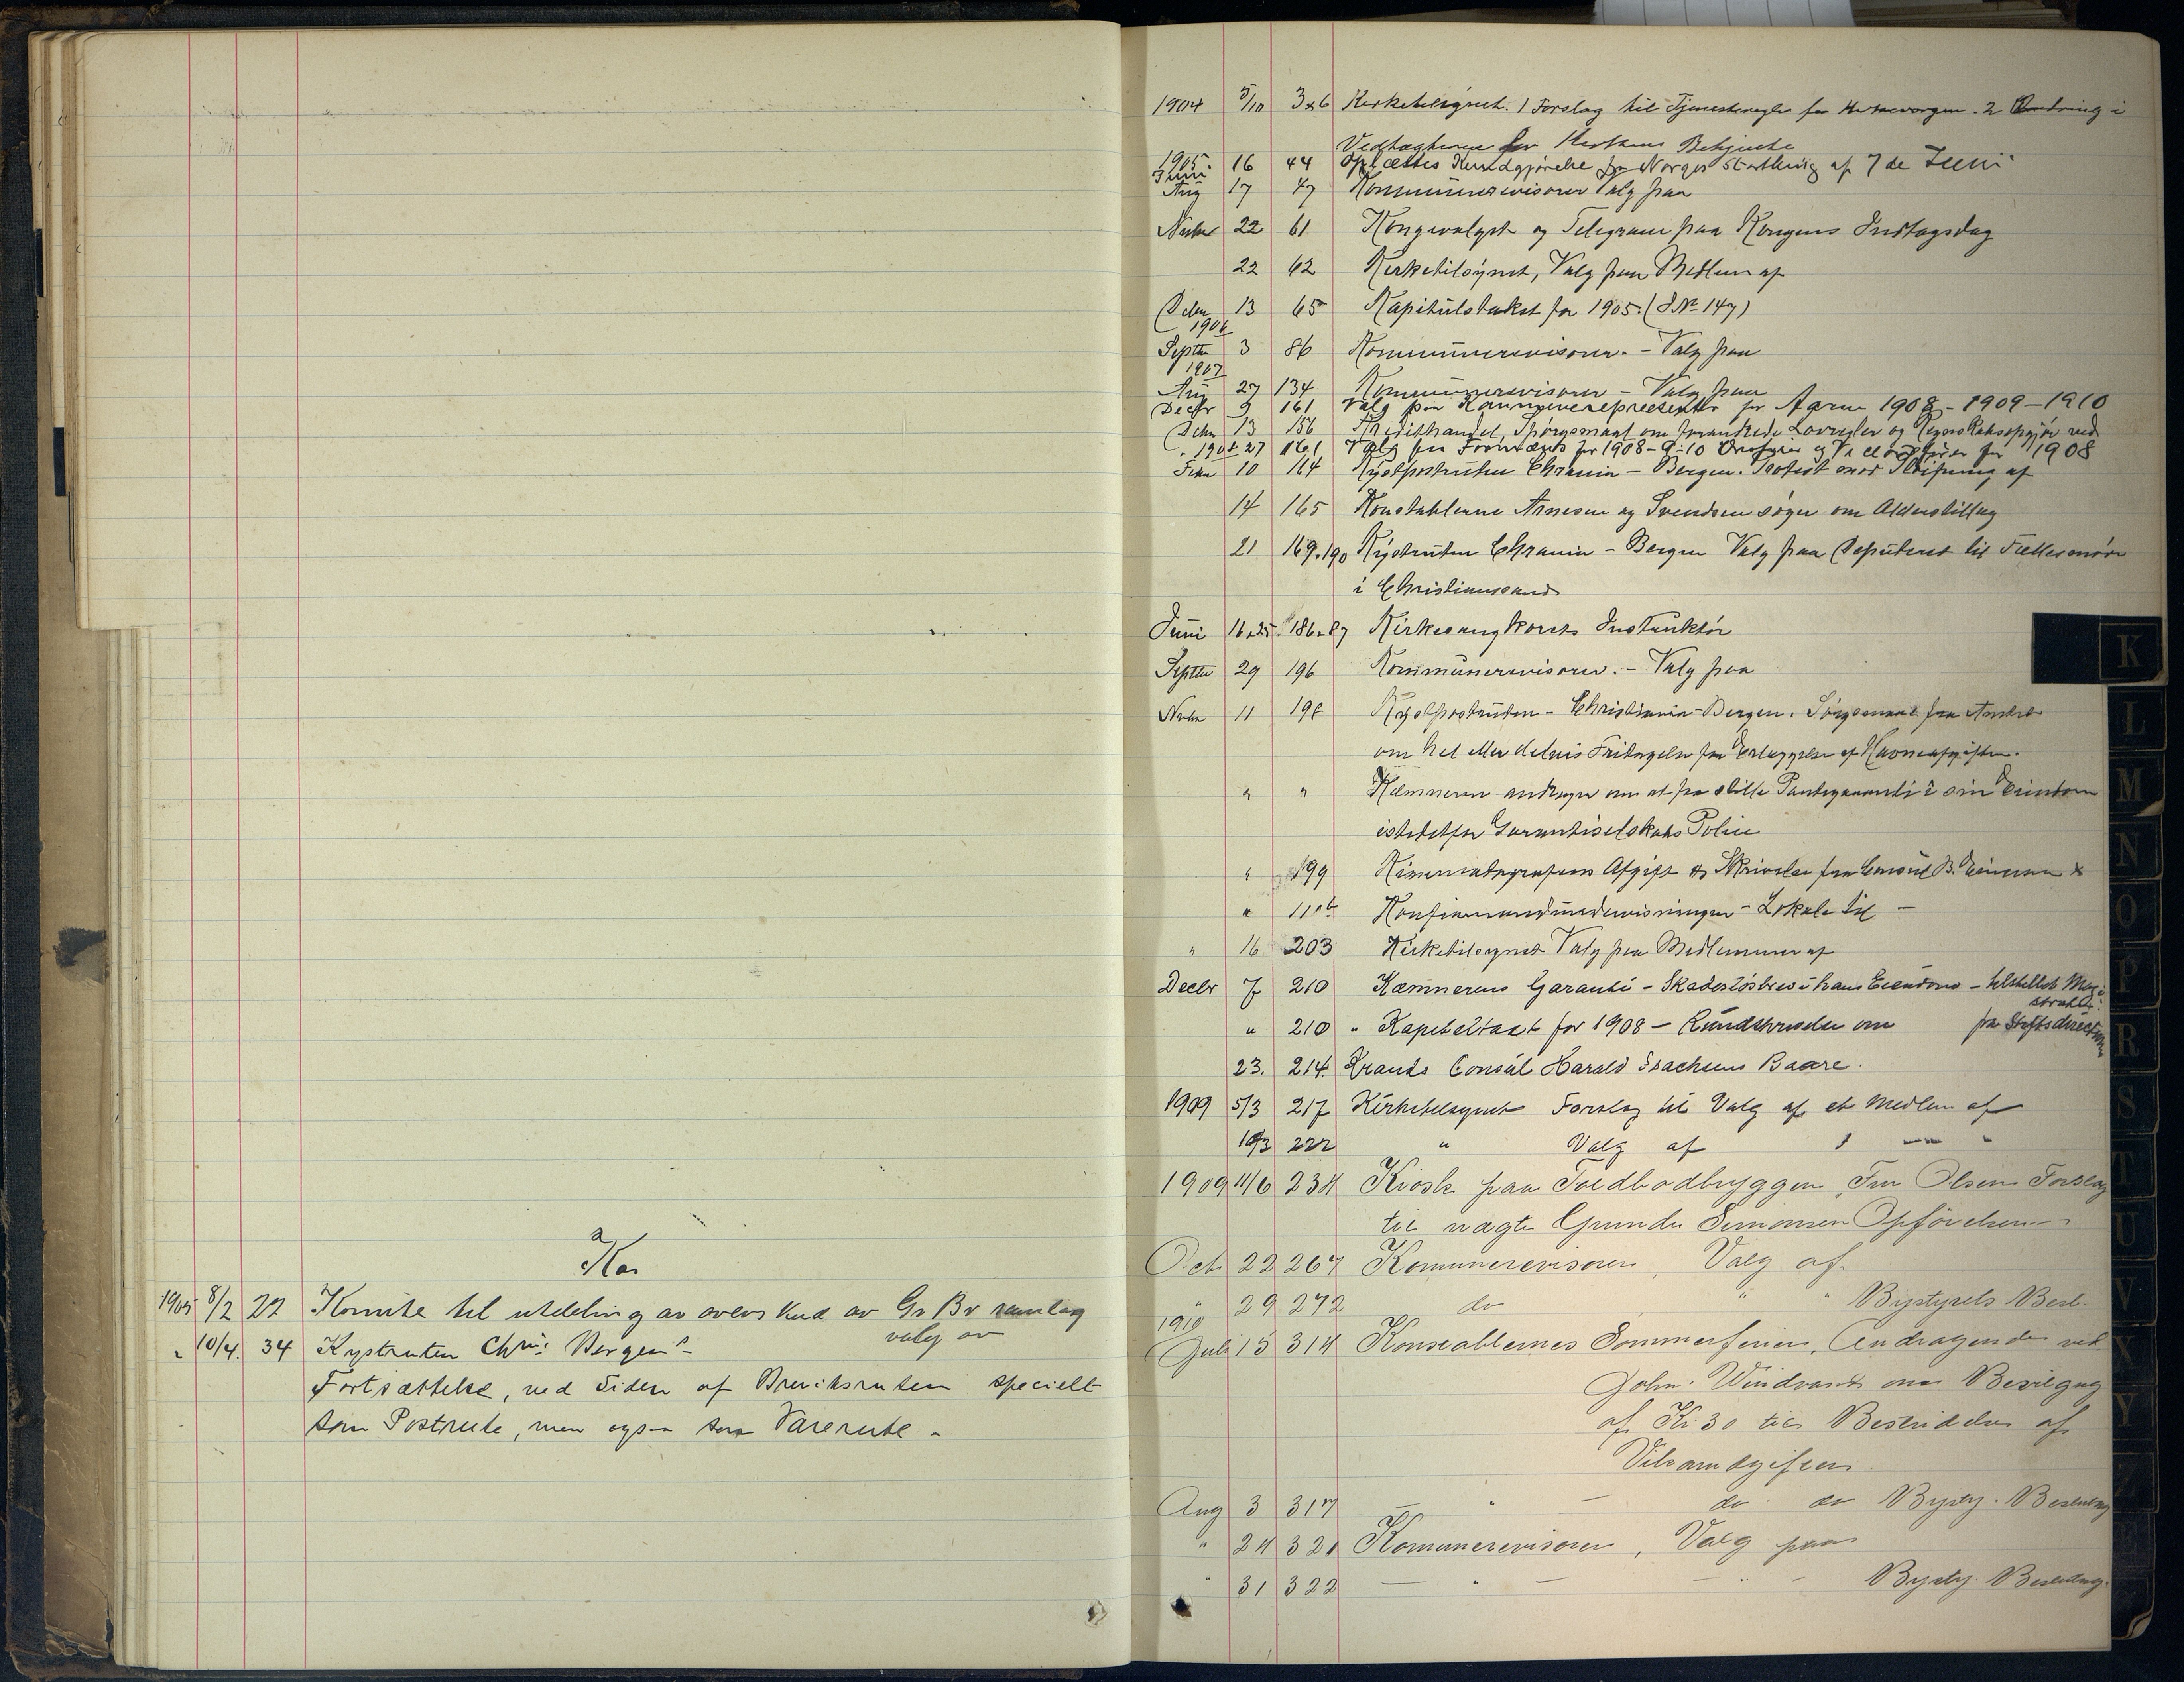 Ka
1905 8/2 22 Komite til utdeling av overskud av Gr Br samlag
valg av
" 10/4. 34 Kystruten Chr. Bergens
Fortsættelse, ved Siden af Breviksruten specielt
som Postrute, men ogsaa som Varerute.
1904 5/10 3 & 6 Kirketilsynet. 1 Forslag til Tjenesteregler for 2 Ændring i
Vedtægterne for Kirkens Betjente
1905 Juni 16 44 Oplæstes Kundgjørelse fra Norges af 7de Juni
Aug 17 47 Kommunerevisorer Valg paa
Novbr 22 61 Kongevalget og Telegram paa Kongens Indtogsdag
22 62 Kirketilsynet, Valg paa Medlem af
Decbr 13 65 Kapitulstakst for 1905. (J.No 147)
1906
Septbr 3 86 Kommunerevisorer. - Valg paa
1907
Aug 27 134 Kommunerevisorer - Valg paa
Decbr 9 161 Valg paa for Aarene 1908 - 1909 - 1910
Decbr 13 156 Spørgsmaal om forandrede Lovregler og ved
1908 27 161 Valg paa for 1908-9-10 Ordfører og Viceordfører for 1908
Febr 10 164 Kystpostruten Chrania - Bergen. Protest mod af
14 165 Konstablerne Arnesen og Svendsen søger om Alderstillæg
21 169.190 Kystruten Chrania - Bergen Valg paa Deputeret til Fællesmøde
i Christianssand
Juni 16 & 25 186 & 87 Kirkesangkorets Instruktør
Septbr 29 196 Kommunerevisorer. - Valg paa
Novbr 11 198 Kystpostruten - Christiania - Bergen. Spørgsmaal fra
om hel eller delvis Fritagelse for Erlæggelse af Havneafgiften.
" " Kæmneren andrager om at faa stille Pantegaranti i sin Eiendom
istedetfor Garantiselskabs Police
" 199 Kinematografens Afgift Skrivelse fra Consul B.
" Konfirmandundervisningen - Lokale til -
" 16 203 Kirketilsynet Valg paa Medlemmer af
Decbr 7 210 Kæmnerens Garanti - Skadesløsbrev i hans Eiendom - tilstillet Magi-
stratet.
" 210 " Kapiteltaxt for 1908 - Rundskrivelse om fra Stiftsdirectionen
23. 214. Krands Consul Harald Isachsens Baare.
1909 5/3 217 Kirketilsynet Forslag til Valg af et Medlem af
19/3 222 " Valg af 1 — "
1909 11/6 234 Kiosk paa Toldbodbryggen, Fru Olsens Forslag
til nægte Opførelsen
Oct 22 267 Komunerevisorer, Valg af
" 29 272 do " " Bystyrets Besl.
1910
Juli 15 314 Konstablernes Sommerferier, Andragende ved
John. Windvand om Bevilgng
af Kr. 30 til Bestridelse af
Aug 3 317 " — do do Bysty. Beslutng
" 24 321 Komunerevisorer, Valg paa
" 31 322 — " — — " — Bysty. Beslutng.
K
L
M
N
O
P
R
S
T
U
V
X
Y
Z